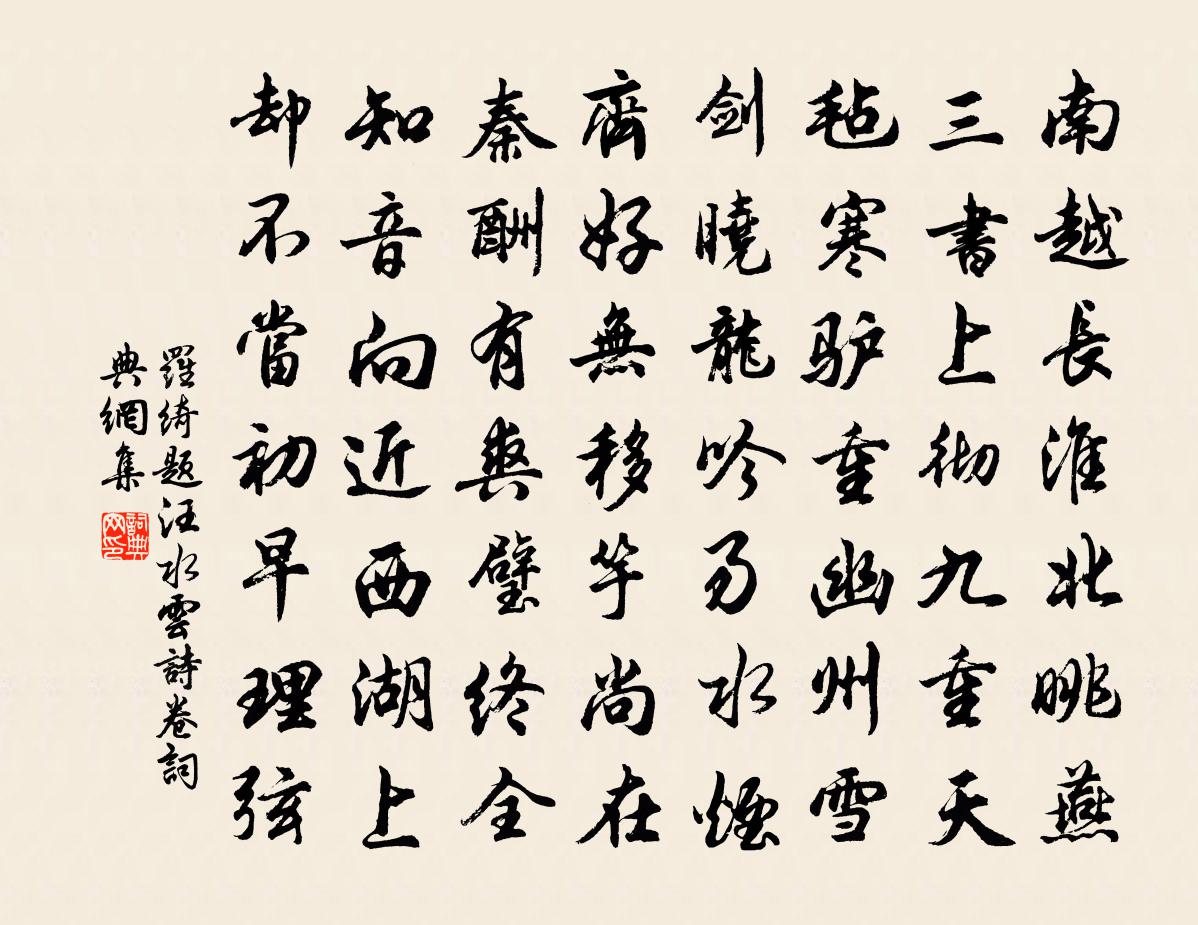 南越長淮北眺燕
三書上彻九重天
毡寒驴重幽州雪
剑曉龍吟易水煙
齊好無移竽尚在
秦酬有爽璧终全
知音向近西湖上
却不當初早理弦
羅綺題汪水雲詩卷詞
典網集
詞典
网印